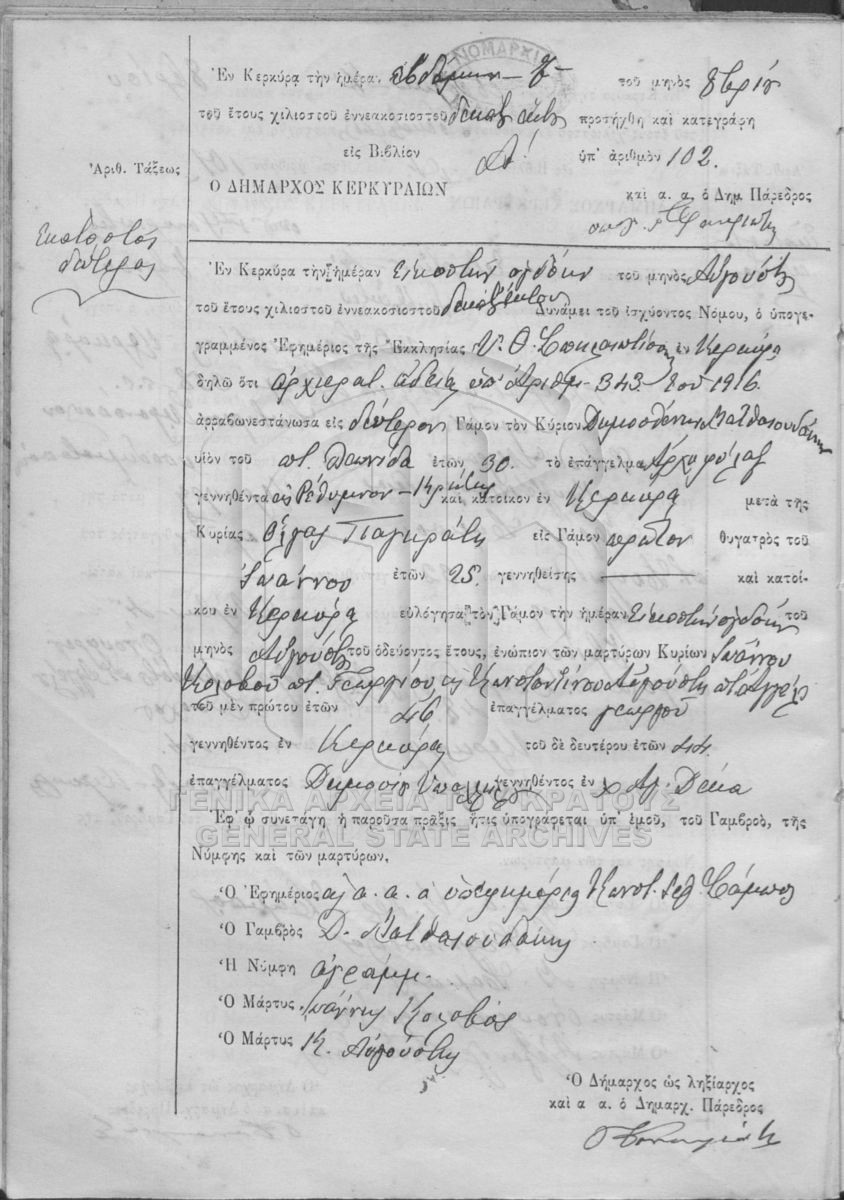 Ἐν Κερκύρᾳ τὴν ἡμέραν ἑβδόμην – 7 – τοῦ μηνὸς 8βρίου
τοῦ ἔτους χιλιοστοῦ ἐννεακοσιοστοῦ προσήχθη καὶ κατεγράφη
εἰς Βιβλίον Α΄ ὑπ' ἀριθμὸν 102.
Ἀριθ. Τάξεως
Ο ΔΗΜΑΡΧΟΣ ΚΕΡΚΥΡΑΙΩΝ
καὶ α. α. ὁ Δημ Πάρεδρος
Ἑκατοστὸς
δεύτερος
Ἐν Κερκύρᾳ τὴν ἡμέραν Εἰκοστὴν ὀγδόην τοῦ μηνὸς Αὐγούστου
τοῦ ἔτους χιλιοστοῦ ἐννεακοσιοστοῦ δεκάτου ἕκτου Δυνάμει τοῦ ἰσχύοντος Νόμου, ὁ ὑπογε-
γραμμένος Ἐφημέριος τῆς Ἐκκλησίας Υ. Θ. ἐν Κερκύρᾳ
δηλῶ ὅτι ἀρχιερατ. ἀδείᾳ ὑπ' ἀριθμ. 343 τοῦ 1916
ἀρραβωνεστάνωσα εἰς δεύτερον Γάμον τὸν Κύριον Δημοσθένην Ματθαιουδάκην
υἱὸν τοῦ ποτ. Λεωνίδα ἐτῶν 30. τὸ ἐπάγγελμα Ἀρχιφύλαξ
γεννηθέντα εἰς Ρέθυμνον – Κρήτης καὶ κάτοικον ἐν Κερκύρᾳ μετὰ τῆς
Κυρίας Ὄλγας Παγκράτη εἰς Γάμον πρῶτον θυγατρὸς τοῦ
Ἰωάννου ἐτῶν 25. γεννηθείσης — καὶ κατοί-
κου ἐν Κερκύρᾳ εὐλόγησα τὸν Γάμον τὴν ἡμέραν Εἰκοστὴν ὀγδόην τοῦ
μηνὸς Αὐγούστου τοῦ ὁδεύοντος ἔτους, ἐνώπιον τῶν μαρτύρων Κυρίων Ἰωάννου
Κολοβοῦ ποτ. Γεωργίου, καὶ Κωνσταντίνου Αὐγούστη ποτ. Ἀνδρέα
τοῦ μὲν πρώτου ἐτῶν 46 ἐπαγγέλματος γεωργοῦ
γεννηθέντος ἐν Κερκύρᾳ τοῦ δὲ δευτέρου ἐτῶν 44.
ἐπαγγέλματος Δημοσίου Ὑπαλλήλου γεννηθέντος ἐν χ. Ἁγ. Δέκα
Ἐφ ᾧ συνετάγη ἡ παροῦσα πρᾶξις ἥτις ὑπογράφεται ὑπ' ἐμοῦ, τοῦ Γαμβροῦ, τῆς
Νύμφης καὶ τῶν μαρτύρων.
ΓΕΝΙΚΑ ΑΡΧΕΙΑ ΤΟΥ ΚΡΑΤΟΥΣ
GENERAL STATE ARCHIVES
Ὁ Ἐφημέριος
Ὁ Γαμβρὸς Δ. Ματθαιουδάκης
Ἡ Νύμφη ἀγράμμ.
Ὁ Μάρτυς Ἰωάννης Κολοβὸς
Ὁ Μάρτυς Κ. Αὐγούστης
Ὁ Δήμαρχος ὡς ληξίαρχος
καὶ α α. ὁ Δημαρχ. Πάρεδρος